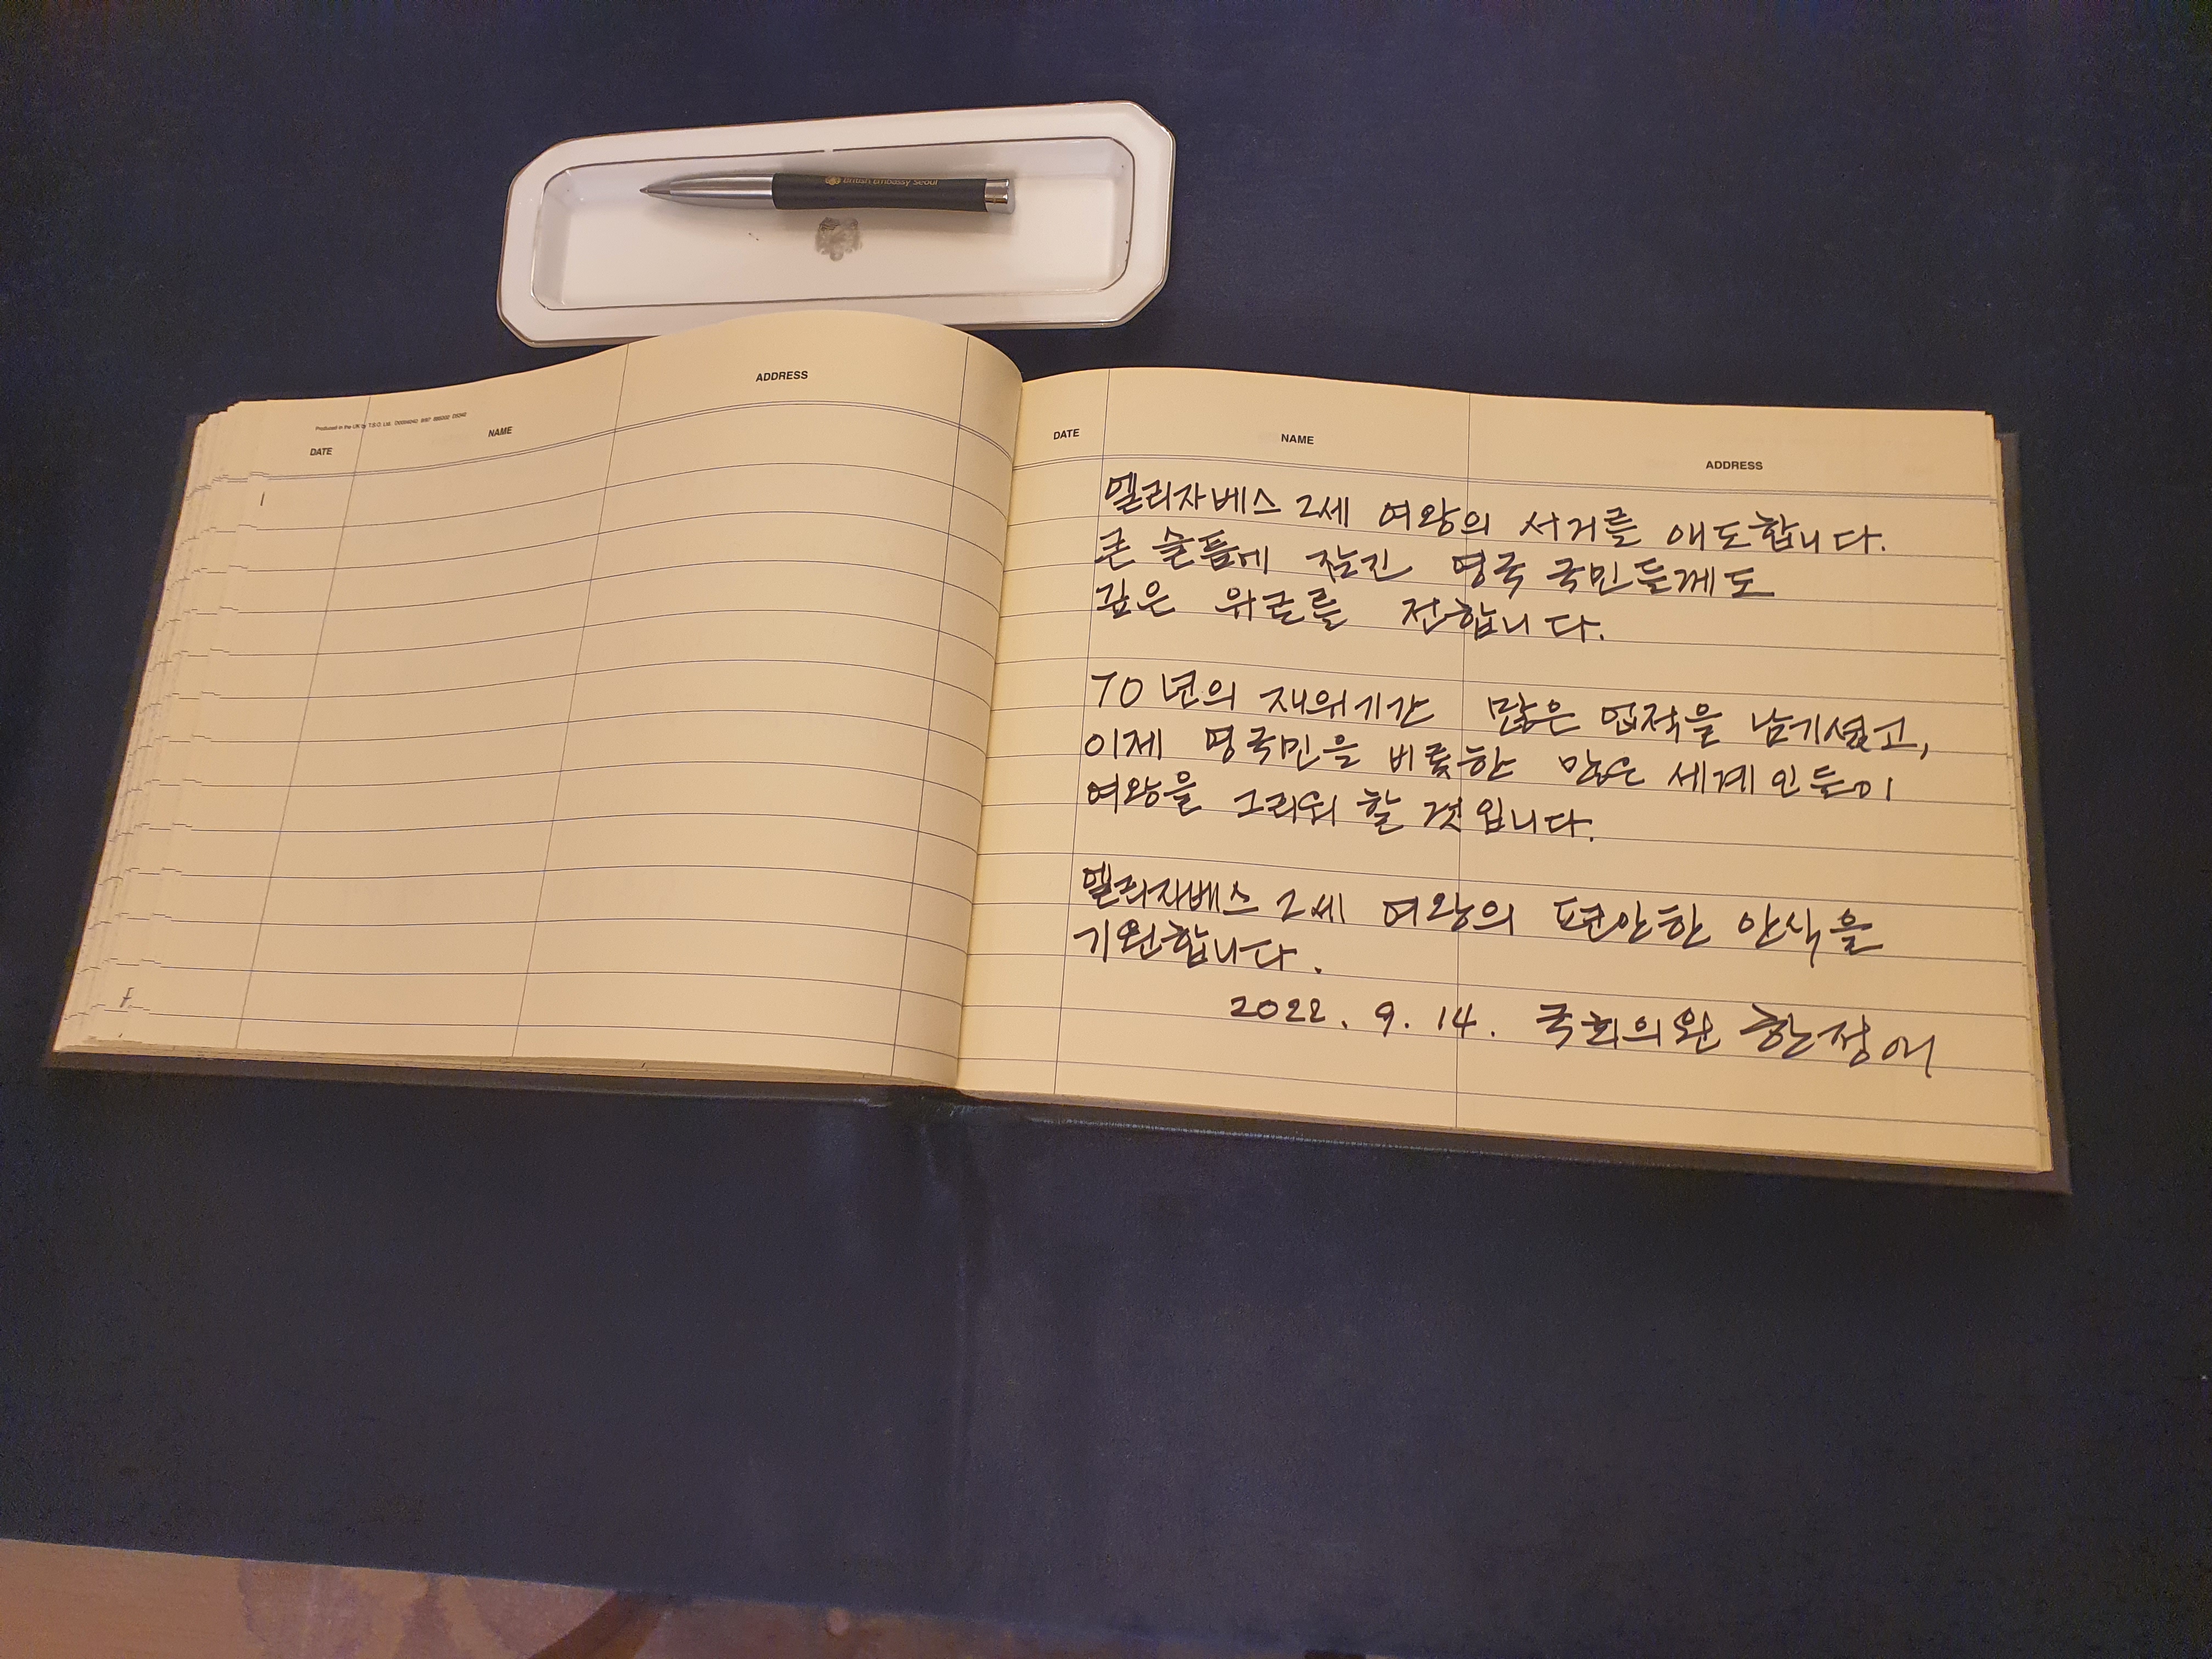 British Embassy Seoul
ADDRESS
Produced in the UK by T.S.O. Ltd.
NAME
DATE
DATE
NAME
ADDRESS
엘리자베스 2세 여왕의 서거를 애도합니다.
큰 슬픔에 잠긴 영국 국민들께도
깊은 위로를 전합니다.
70년의 재위기간 많은 업적을 남기셨고,
이제 영국민을 비롯한 많은 세계인들이
여왕을 그리워 할 것입니다.
엘리자베스 2세 여왕의 편안한 안식을
기원합니다.
2022. 9. 14. 국회의원 한정애